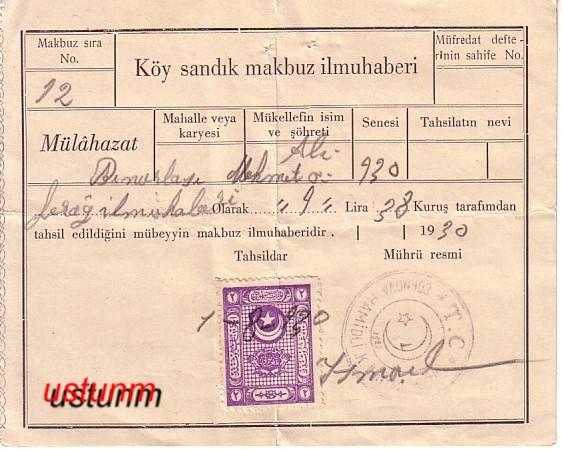 Makbuz sıra No.
12
Köy sandık makbuz ilmuhaberi
Müfredat defterinin sahife No.
Mülâhazat
Mahalle veya karyesi
Mükellefin isim ve şöhreti
Senesi
Tahsilatın nevi
Mehmet
Ali
930
ilmuhaberi Olarak „ 9 „ Lira 38 Kuruş tarafından
tahsil edildiğini mübeyyin makbuz ilmuhaberidir. | | 1930
Tahsildar
Mührü resmi
T. C.
ustunm
ustunm